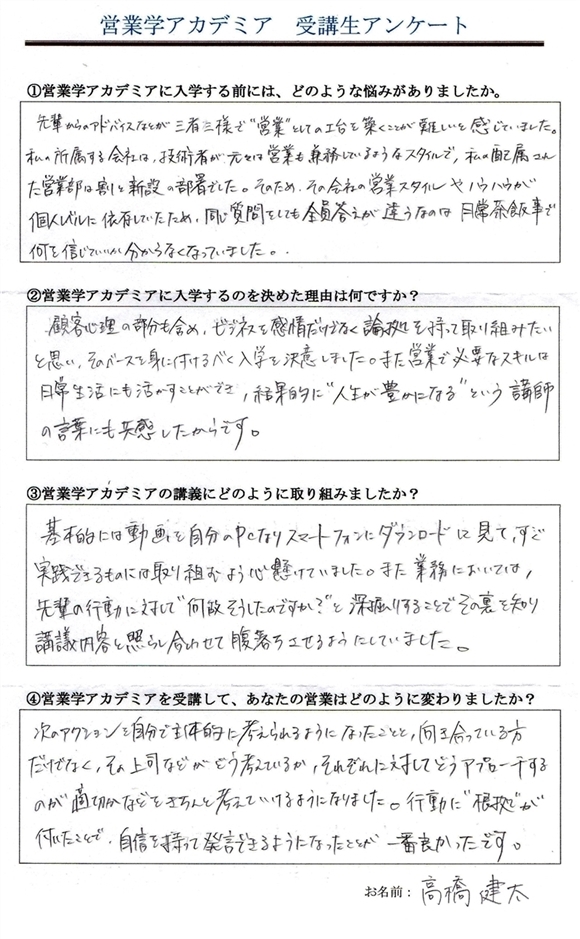 営業学アカデミア 受講生アンケート
①営業学アカデミアに入学する前には、どのような悩みがありましたか。
先輩からのアドバイスなどが三者三様で"営業"としての土台を築くことが難しいと感じていました。
私の所属する会社は、技術者が元々は営業も兼務しているようなスタイルで、私の配属され
た営業部は割と新設の部署でした。そのため、その会社の営業スタイルやノウハウが
個人レベルに依存していたため、同じ質問をしても全員答えが違うなのは日常茶飯事で
何を信じていいか分からなくなっていました。
②営業学アカデミアに入学するのを決めた理由は何ですか？
顧客心理の部分も含め、ビジネスを感情だけでなく論拠を持って取り組みたい
と思い、そのベースを身に付けるべく入学を決意しました。また営業で必要なスキルは
日常生活にも活かすことができ、結果的に"人生が豊かになる"という講師
の言葉にも共感したからです。
③営業学アカデミアの講義にどのように取り組みましたか？
基本的には動画を自分のPCなりスマートフォンにダウンロードして見て、すぐ
実践できるものには取り組むよう心懸けていました。また業務においては、
先輩の行動に対して"何故そうしたのですか？"と深掘りすることでその裏を知り
講議内容と照らし合わせて腹落ちさせるようにしていました。
④営業学アカデミアを受講して、あなたの営業はどのように変わりましたか？
次のアクションを自分で主体的に考えられるようになったことと、向き合っている方
だけでなく、その上司などがどう考えているか、それぞれに対してどうアプローチする
のが適切かなどをきちんと考えていけるようになりました。行動に"根拠"が
付いたことで、自信を持って発言できるようになったことが一番良かったです。
お名前：高橋 健太